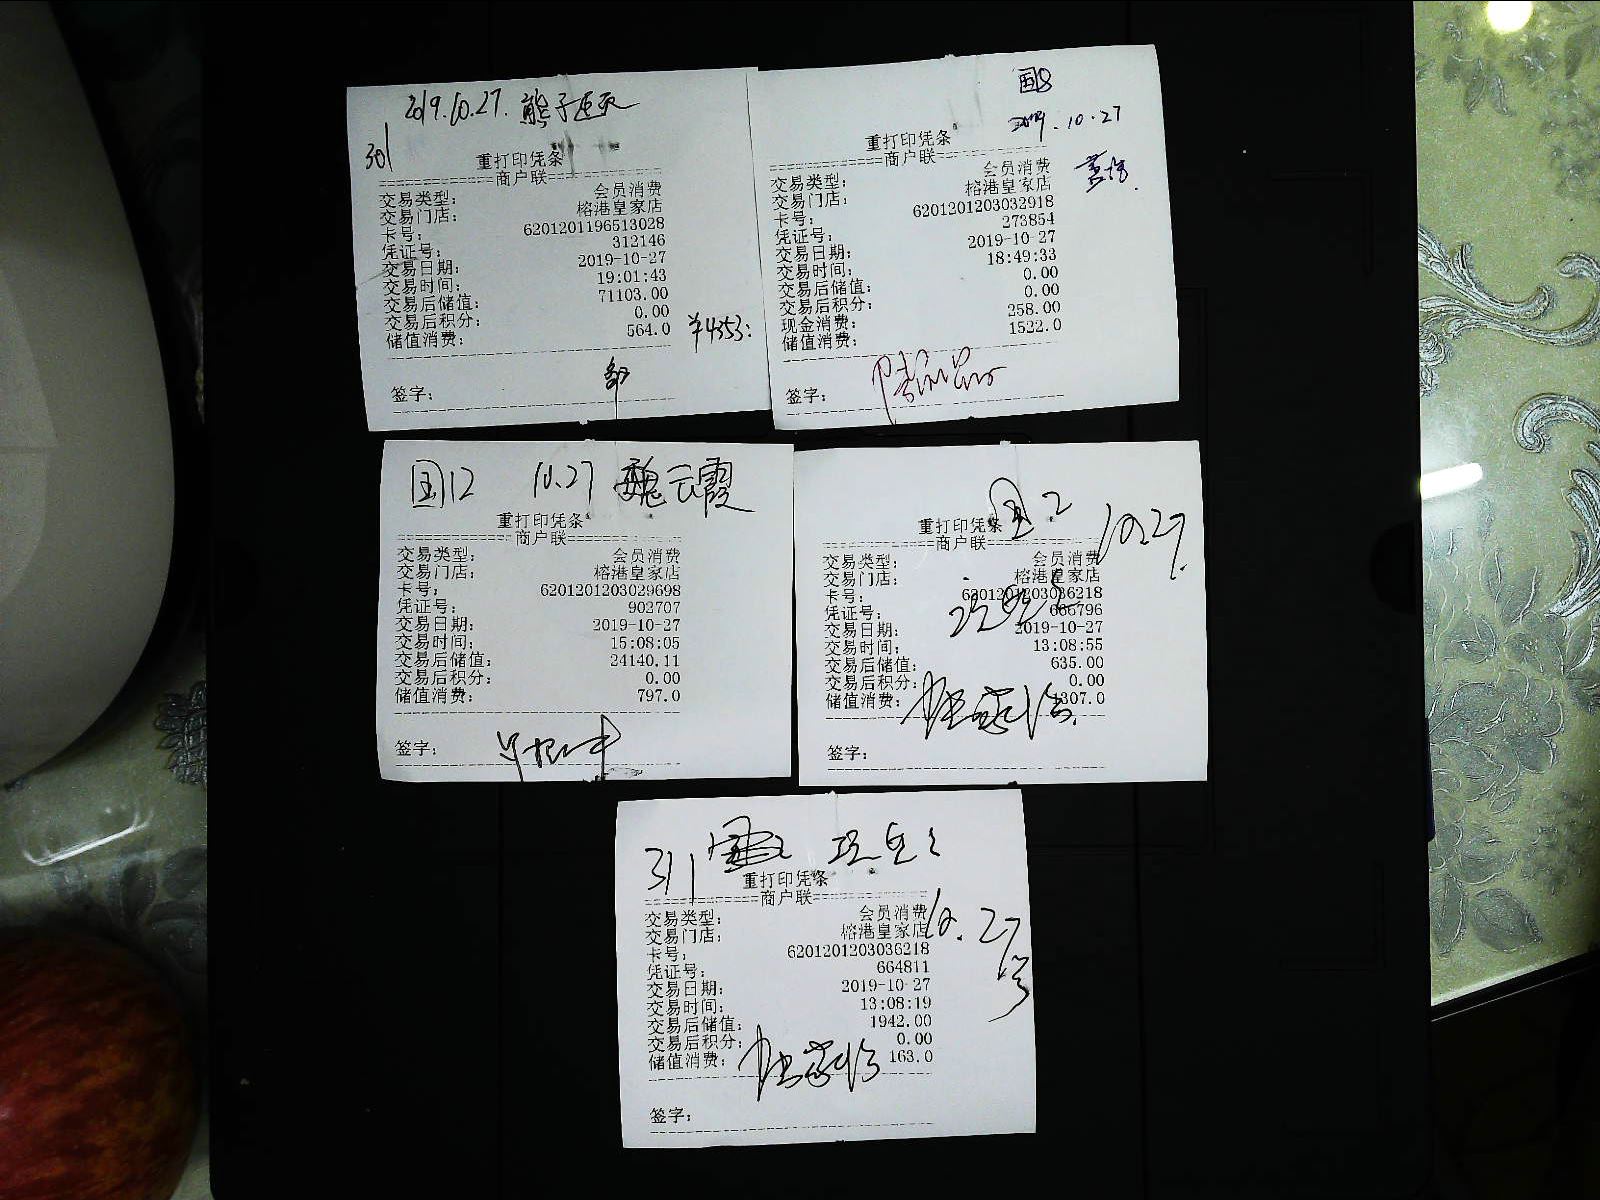 2019.10.27.
301
重打印凭条
商户联
交易类型： 会员消费
交易门店： 榕港皇家店
卡号： 6201201196513028
凭证号： 312146
交易日期： 2019-10-27
交易时间： 19:01:43
交易后储值： 71103.00
交易后积分： 0.00
储值消费： 564.0
¥4353:
签字：
国8
2019.10.27
重打印凭条
商户联
交易类型： 会员消费
交易门店： 榕港皇家店
卡号： 6201201203032918
凭证号： 273854
交易日期： 2019-10-27
交易时间： 18:49:33
交易后储值： 0.00
交易后积分： 0.00
现金消费： 258.00
储值消费： 1522.0
签字：
国12 10.27 魏云霞
重打印凭条
商户联
交易类型： 会员消费
交易门店： 榕港皇家店
卡号： 6201201203029698
凭证号： 902707
交易日期： 2019-10-27
交易时间： 15:08:05
交易后储值： 24140.11
交易后积分： 0.00
储值消费： 797.0
签字：
国2
10.27.
重打印凭条
商户联
交易类型： 会员消费
交易门店： 榕港皇家店
卡号： 6201201203036218
凭证号： 666796
交易日期： 2019-10-27
交易时间： 13:08:55
交易后储值： 635.00
交易后积分： 0.00
储值消费： 1307.0
签字：
311
重打印凭条
商户联
10.27号
交易类型： 会员消费
交易门店： 榕港皇家店
卡号： 6201201203036218
凭证号： 664811
交易日期： 2019-10-27
交易时间： 13:08:19
交易后储值： 1942.00
交易后积分： 0.00
储值消费： 163.0
签字：